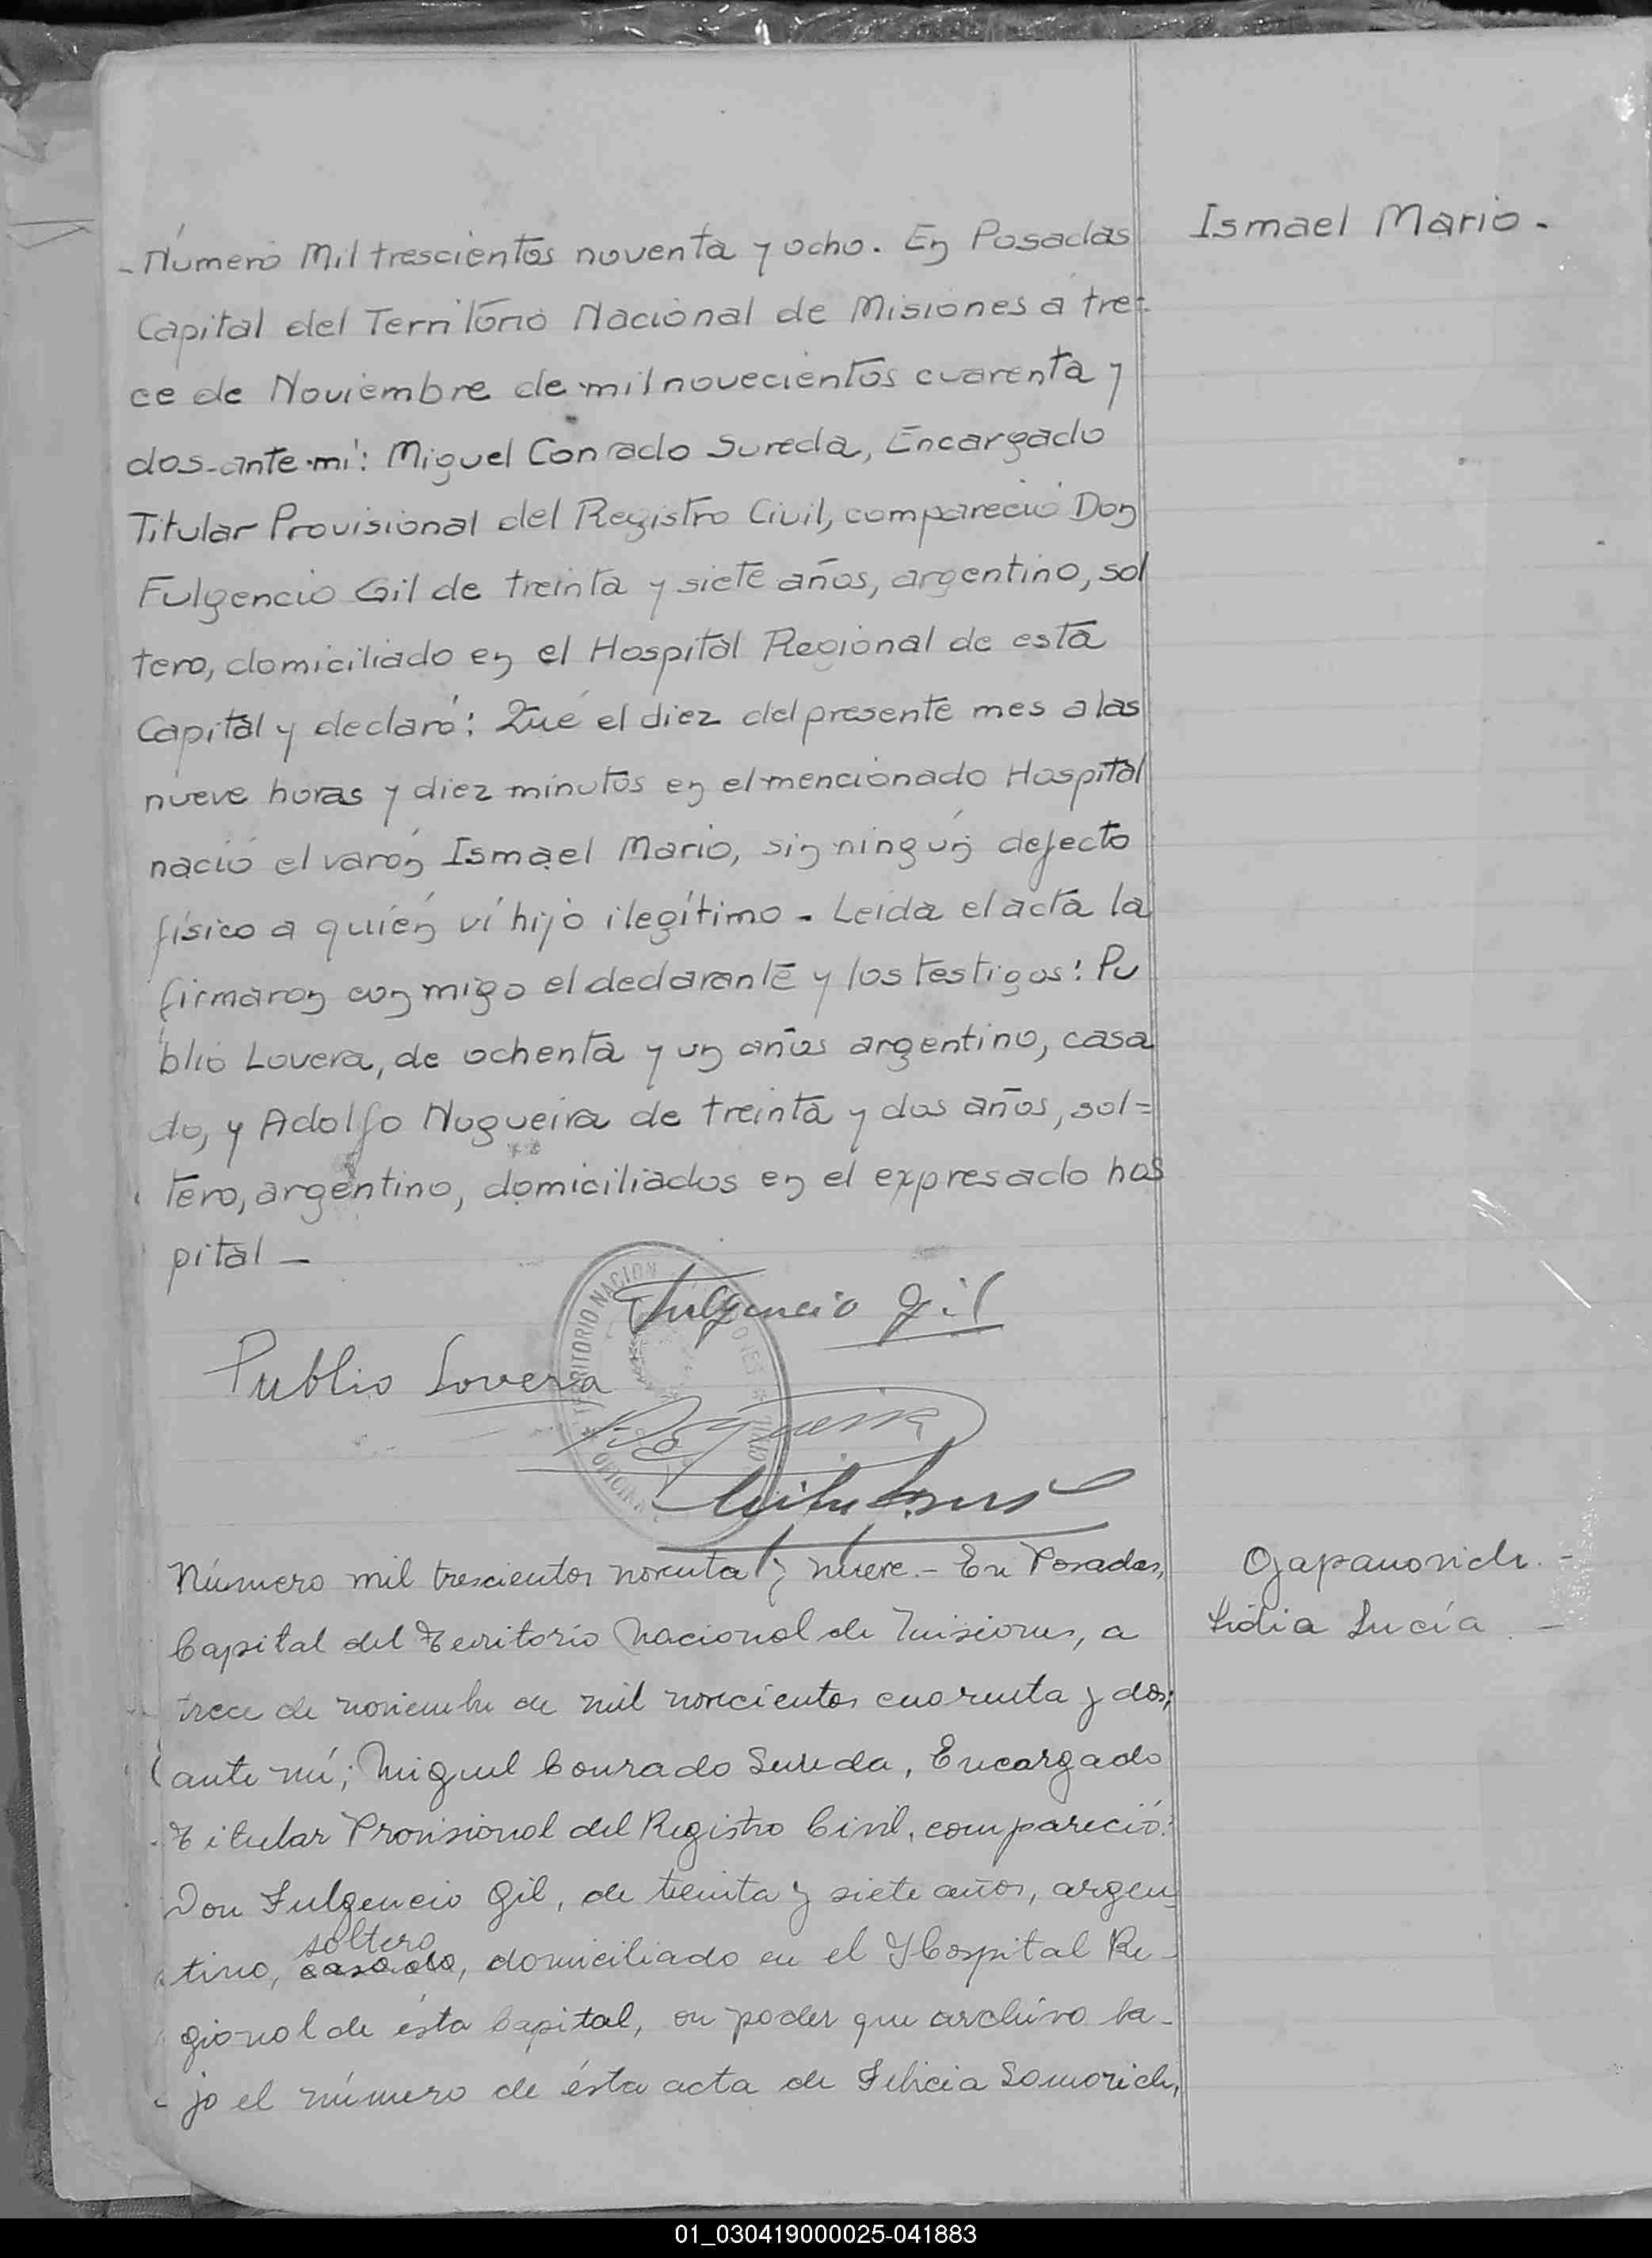 Ismael Mario -
- Número Mil trescientos noventa y ocho. En Posadas
Capital del Territorio Nacional de Misiones a tre=
ce de Noviembre de mil novecientos cuarenta y
dos-ante mí: Miguel Conrado Sureda, Encargado
Titular Provisional del Registro Civil, compareció Don
Fulgencio Gil de treinta y siete años, argentino, sol
tero, domiciliado en el Hospital Regional de esta
Capital y declaró: Qué el diez del presente mes a las
nueve horas y diez minutos en el mencionado Hospital
nació el varón Ismael Mario, sin ningún defecto
físico a quién ví hijo ilegítimo - Leída el acta la
firmaron conmigo el declarante y los testigos: Pu
blio Lovera, de ochenta y un años argentino, casa
do, y Adolfo Nogueira de treinta y dos años, sol=
tero, argentino, domiciliados en el expresado hos
pital -
Fulgencio Gil
Publio Lovera
TERRITORIO NACION
OFICINA
Ojapanovich -
Lidia Lucía -
Número mil trescientos noventa y nueve - En Posadas,
Capital del Territorio Nacional de Misiones, a
trece de noviembre de mil novecientos cuarenta y dos;
ante mí; Miguel Conrado Sureda, Encargado
Titular Provisional del Registro Civil, compareció:
Don Fulgencio Gil, de treinta y siete años, argen
soltero
tino, casado, domiciliado en el Hospital Re-
gional de ésta Capital, en poder que archivo ba-
jo el número de ésta acta de Felicia
01_030419000025-041883